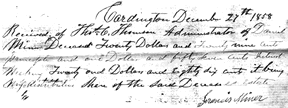 Cardington December 27th 1858
Received of Thos. C. Thomson Administrator of Daniel
Miner Deceased Twenty Dollars and Twenty nine cents
principle and Dollar and fifty cents interest
Making Twenty one Dollars and Eighty six cents it being
share of the said Deceased
Francis Miner